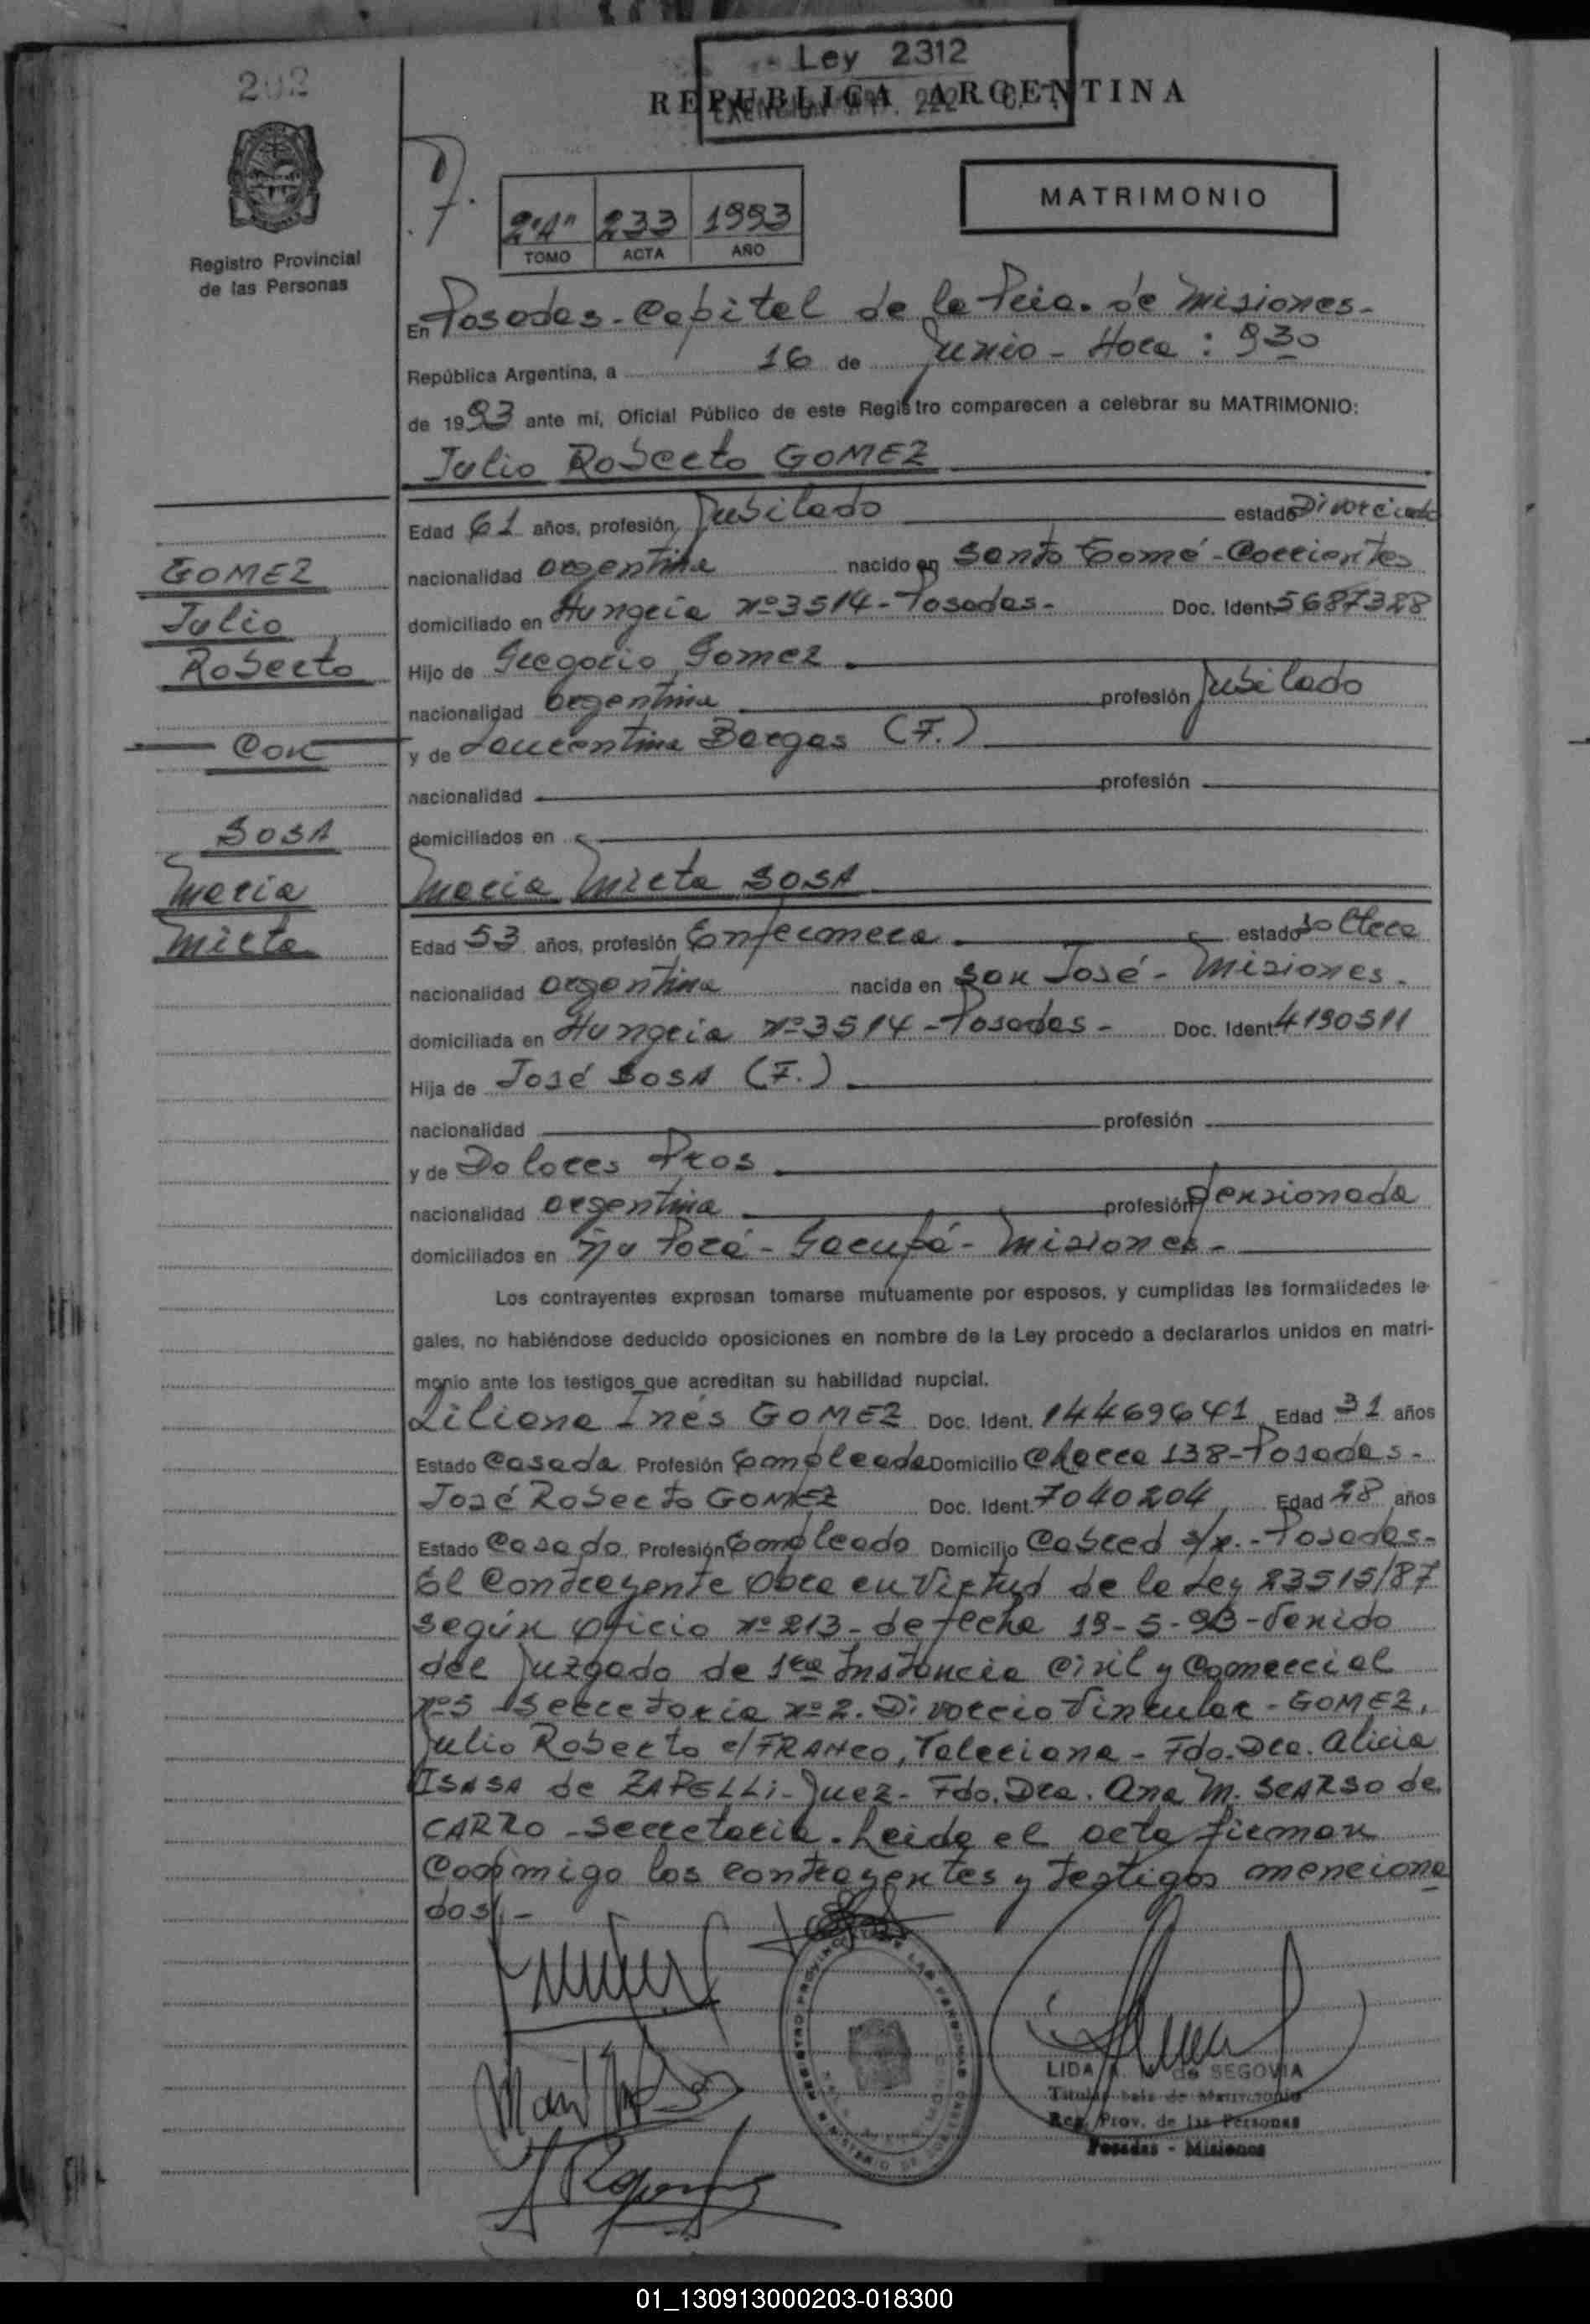 202
Ley 2312
REPUBLICA ARGENTINA
MATRIMONIO
2"A" 233 1993
TOMO ACTA AÑO
Registro Provincial
de las Personas
En Posadas - Capital de la Pcia. de Misiones -
República Argentina, a 16 de Junio - Hora : 9 30
de 1993 ante mi, Oficial Público de este Registro comparecen a celebrar su MATRIMONIO:
Julio Roberto GOMEZ
Edad 61 años, profesión Jubilado estado Divorciado
GOMEZ
Julio
Roberto
con
SOSA
Maria
Mirta
nacionalidad argentina nacido en Santo Tomé - Corrientes
domiciliado en Hungria nº 3514 - Posadas - Doc. Ident 5687328
Hijo de Gregorio Gomez
nacionalidad argentina profesión Jubilado
y de Laurentina Bargas (F.)
nacionalidad profesión
domiciliados en
Maria Mirta SOSA
Edad 53 años, profesión Enfermera estado soltera
nacionalidad argentina nacida en San José - Misiones -
domiciliada en Hungria nº 3514 - Posadas - Doc. Ident 4190511
Hija de José SOSA (F.)
nacionalidad profesión
y de Dolores Pros
nacionalidad argentina profesión pensionada
domiciliados en Ñu Porá - Garupá - Misiones -
Los contrayentes expresan tomarse mutuamente por esposos, y cumplidas las formalidades le-
gales, no habiéndose deducido oposiciones en nombre de la Ley procedo a declararlos unidos en matri-
monio ante los testigos que acreditan su habilidad nupcial.
Liliana Inés GOMEZ Doc. Ident. 14469641 Edad 31 años
Estado Casada Profesión Empleada Domicilio Chacra 138 - Posadas -
José Roberto GOMEZ Doc. Ident. 7040204 Edad 28 años
Estado Casado Profesión Empleado Domicilio Cabred s/n. - Posadas -
El Contrayente obra en Virtud de la Ley 23515/87
según oficio nº 213 - de fecha 19-5-93 - Venido
del Juzgado de 1ra Instancia Civil y Comercial
nº 5 - Secretaria nº 2. Divorcio Vincular - GOMEZ,
Julio Roberto c/ FRANCO, Valeriana - Fdo. Dra. Alicia
ISASA de ZAPELLI - Juez - Fdo. Dra. Ana M. SCARSO de
CARZO - Secretaria. Leida el acta firman
conmigo los contrayentes y testigos menciona
dos. -
LIDA de SEGOVIA
Reg. Prov. de las Personas
Posadas - Misiones
01_130913000203-018300